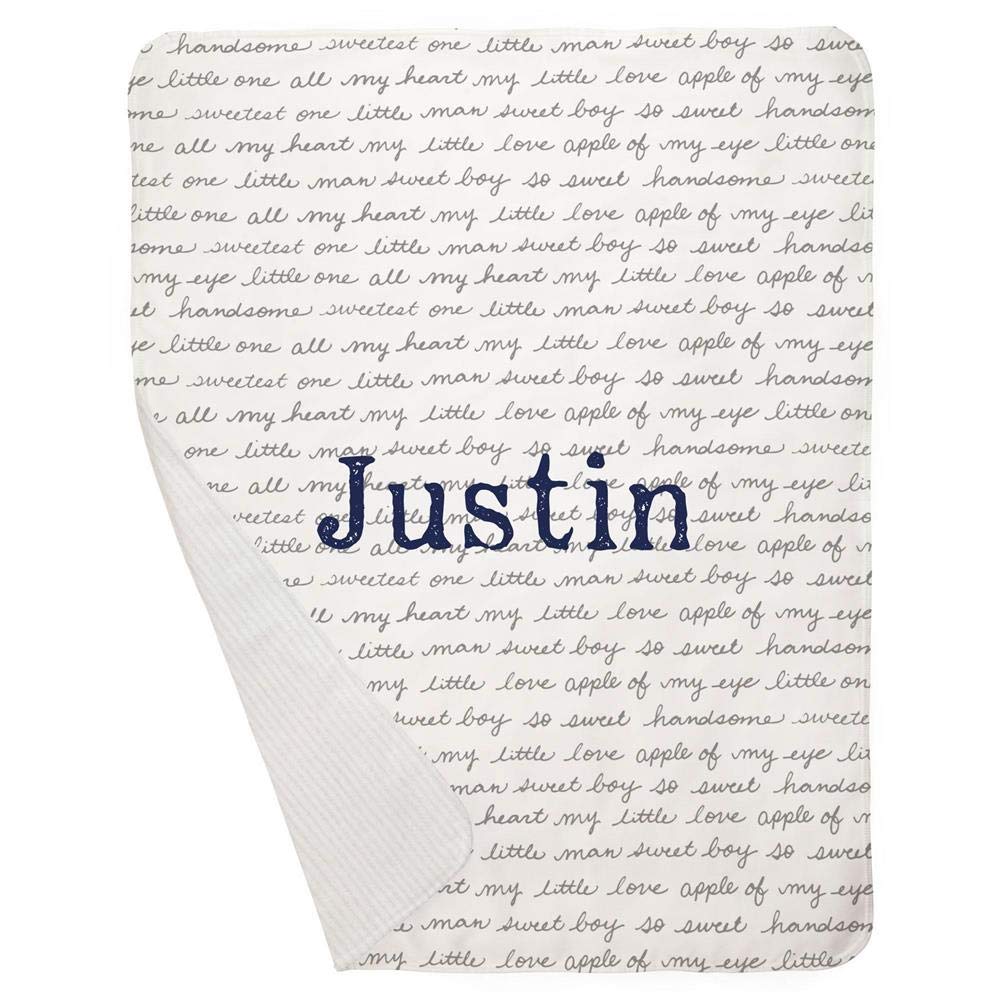 handsome sweetest one little man sweet boy so swee
ye little one all my heart my little love apple of my eye
me sweetest one little man sweet boy so sweet handsom
ne all my heart my little love apple of my eye little one
test one little man sweet boy so sweet handsome sweete
little one all my heart my little love apple of my eye lit
some sweetest one little man sweet boy so sweet handso
my eye little one all my heart my little love apple of m
et handsome sweetest one little man sweet boy so sweet
ye little one all my heart my little love apple of my eye
me sweetest one little man sweet boy so sweet handsom
e all my heart my little love apple of my eye little on
one little man sweet boy so sweet handsome sweete
ne all my heart my little love apple of my eye lit
Justin
weetest one little man sweet boy so sweet handso
little one all my heart my little love apple of m
ne sweetest one little man sweet boy so sweet
ll my heart my little love apple of my eye
little man sweet boy so sweet handsom
my little love apple of my eye little on
sweet boy so sweet handsome sweete
my little love apple of my eye lit
man sweet boy so sweet handso
heart my little love apple of m
little man sweet boy so sweet
rt my little love apple of my eye
man sweet boy so sweet handsom
my little love apple of my eye little